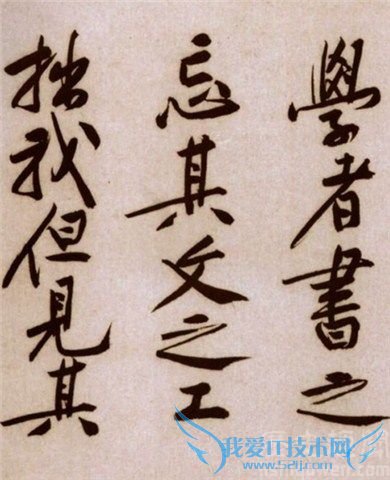 學者書之
忘其文之工
拙我但見其
我爱IT技术网
www.52ij.com